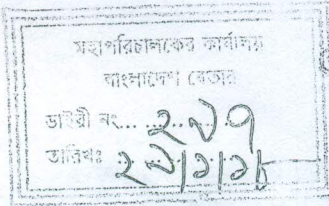 মহাপরিচালকের কার্যালয়
বাংলাদেশ বেতার
ডাইরী নং... ২৬৭
তারিখঃ